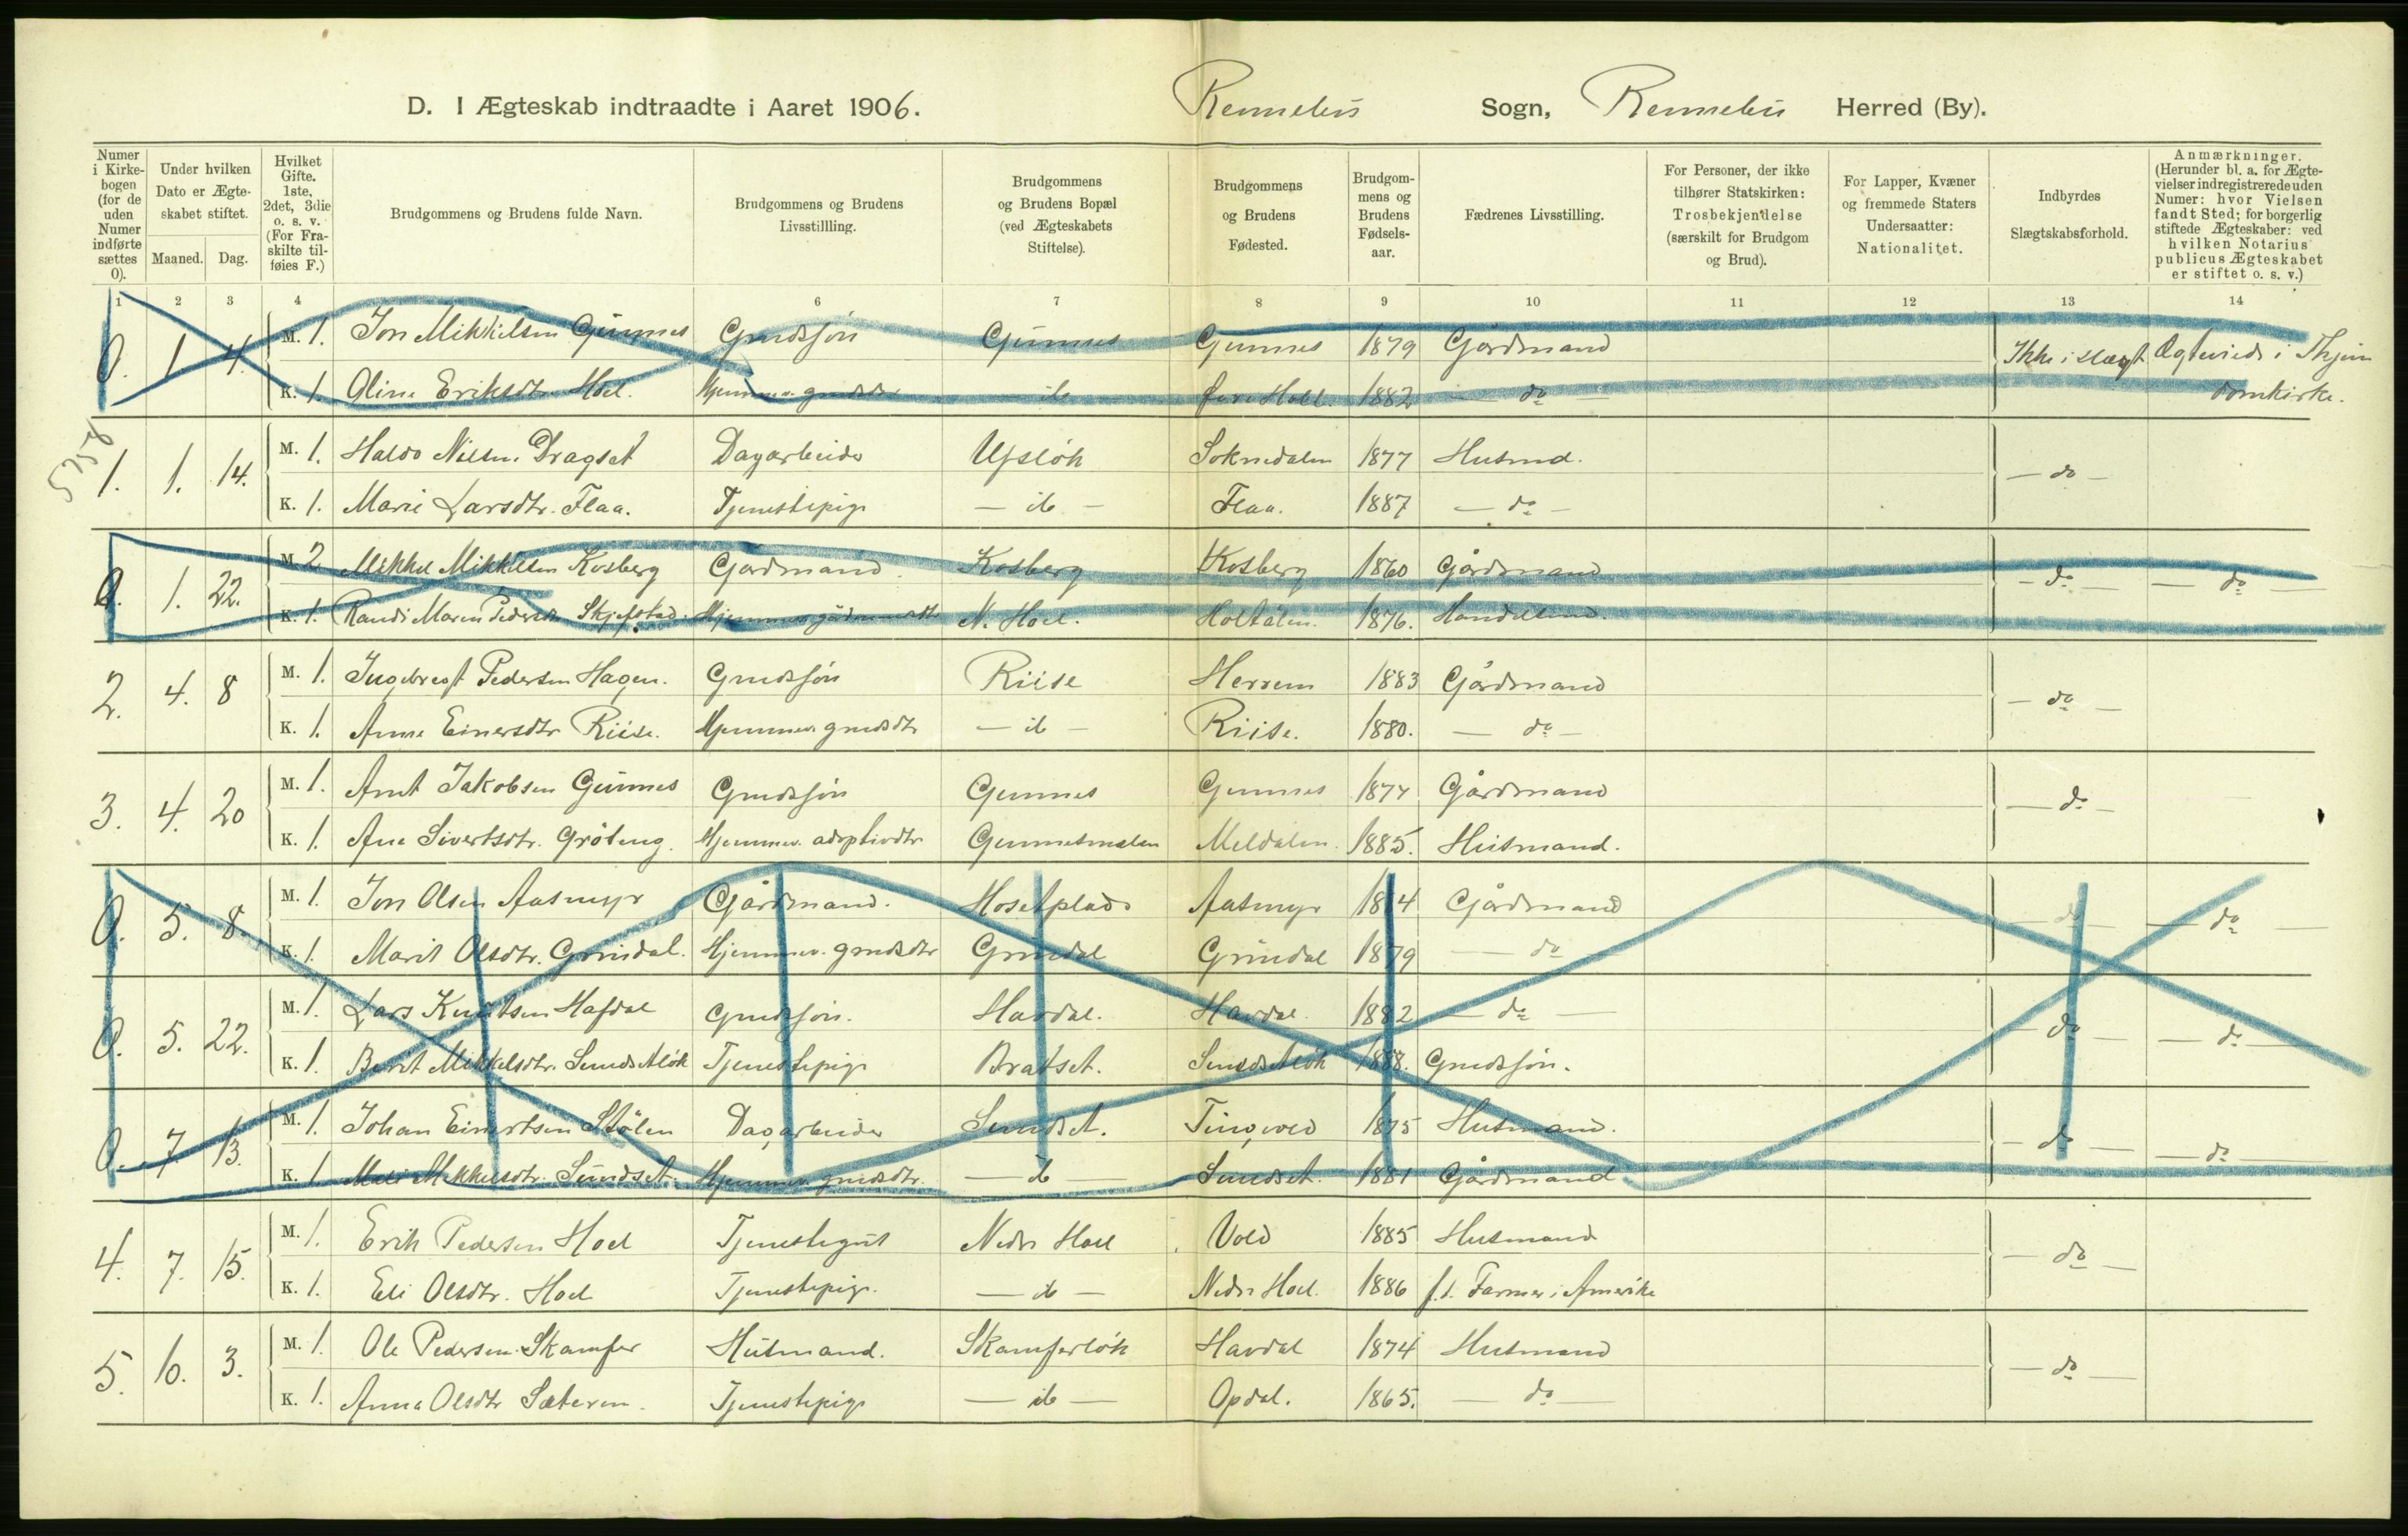 D. I Ægteskab indtraadte i Aaret 1906. Rennebu Sogn, Rennebu Herred (By).
Numer i Kirkebogen (for de uden Numer indførte sættes 0).
Under hvilken Dato er Ægteskabet stiftet.
Maaned. Dag.
Hvilket Gifte. 1ste, 2det, 3die o. s. v. (For Fraskilte tilføies F.)
Brudgommens og Brudens fulde Navn.
Brudgommens og Brudens Livsstillling.
Brudgommens og Brudens Bopæl (ved Ægteskabets Stiftelse).
Brudgommens og Brudens Fødested.
Brudgommens og Brudens Fødselsaar.
Fædrenes Livsstilling.
For Personer, der ikke tilhører Statskirken: Trosbekjendelse (særskilt for Brudgom og Brud).
For Lapper, Kvæner og fremmede Staters Undersaatter: Nationalitet.
Indbyrdes Slægtskabsforhold.
Anmærkninger. (Herunder bl. a. for Ægtevielser indregistrerede uden Numer: hvor Vielsen fandt Sted; for borgerlig stiftede Ægteskaber: ved hvilken Notarius publicus Ægteskabet er stiftet o. s. v.)
1 2 3 4 6 7 8 9 10 11 12 13 14
0. 1 4. M. 1. Jon Mikkelsen Gunnes Grdsjøn Gunnes Gunnes 1879 Gårdmand Ikke i slægt Ægteviede i Thjem
K. 1. Oline Eriksdtr. Hoel. Hjemmev. grdsdtr — ib — 1882 — do — domkirke.
5358
1. 1. 14. M. 1. Haldo Nilsen Dragset Dagarbeider Ulfsløk Soknedalen 1877 Husmd. — do —
K. 1. Marie Larsdtr. Flaa. Tjenestepige — ib — Flaa. 1887 — do —
0. 1. 22. M. 2 Mikkel Mikkelsen Kosberg Gårdmand Kosberg Kosberg 1860 Gårdmand — do — — do —
K. 1. Randi Maren Pedersdtr. Skjefstad. N. Hoel. Holtålen. 1876. Handelsmd.
2. 4. 8 M. 1. Ingebregt Pedersen Hagen. Grdsjøn Riise Herrem 1883 Gårdmand — do —
K. 1. Anne Einersdtr Riise. Hjemmev. grdsdtr — ib — Riise. 1880. — do —
3. 4. 20 M. 1. Arnt Jakobsen Gunnes Grdsjøn Gunnes Gunnes 1877 Gårdmand — do —
K. 1. Ane Sivertsdtr. Gröteng. Hjemmev. adoptivdtr Gunnesmælen Meldalen. 1885. Husmand.
0. 5. 8. M. 1. Jon Olsen Aasmyr Gårdmand. Hosetplads Aasmyr 1874 Gårdmand — do —
K. 1. Marit Olsdtr. Grindal. Hjemmev. grdsdtr Grindal Grindal 1879 — do
0. 5. 22. M. 1. Lars Knutsen Hafdal Grdsjøn. Havdal. Havdal. 1882 — do — — do — — do —
K. 1. Berit Mikkelsdtr. Sundsetløk Tjenestepige Bratset. Sundsetløk 1888. Grdsjøn.
0. 7. 13. M. 1. Johan Einertsen Stölen Dagarbeider Sundset. Tingvold 1875 Husmand. — do — — do —
K. 1 Mali Mikkelsdtr. Sundset. Hjemmev. grdsdtr. — ib — Sundset. 1881 Gårdmand
4. 7. 15. M. 1. Erik Pedersen Hoel Tjenestegut Nedre Hoel Vold 1885 Husmand — do —
K. 1. Eli Olsdtr. Hoel Tjenestepige. — ib — Nedre Hoel. 1886 f.t. Farmer i Amerika
5. 10. 3. M. 1. Ole Pedersen Skamfer Husmand. Skamferløk Havdal 1874 Husmand — do —
K. 1. Anna Olsdtr Sæteren. Tjenestepige — ib — Opdal. 1865. — do —